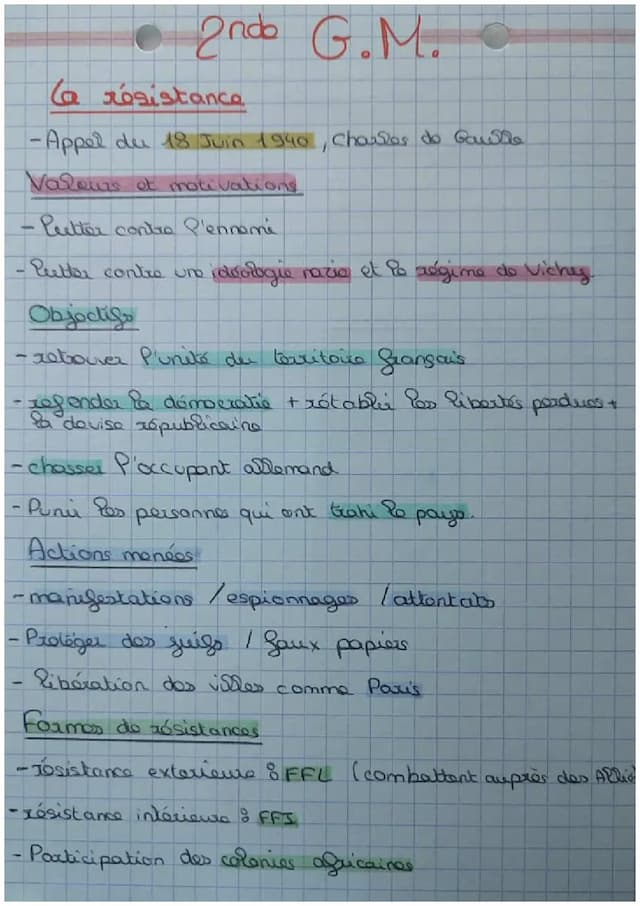 2nde G.M.
La résistance
- Appel du 18 Juin 1940, Charles de Gaulle
Valeurs et motivations
- lutter contre l'ennemi
- lutter contre une idéologie nazie et le régime de Vichy.
Objectifs
- retrouver l'unité du territoire français
- refonder la démocratie + rétablir les libertés perdues +
la devise républicaine
- chasser l'occupant allemand
- Punir les personnes qui ont trahi le pays.
Actions menées
- manifestations / espionnages / attentats
- Protéger des juifs / faux papiers
- libération des villes comme Paris
Formes de résistances
- résistance exterieure : FFL (combattent auprès des Alliés
- résistance intérieure : FFI
- Participation des colonies africaines